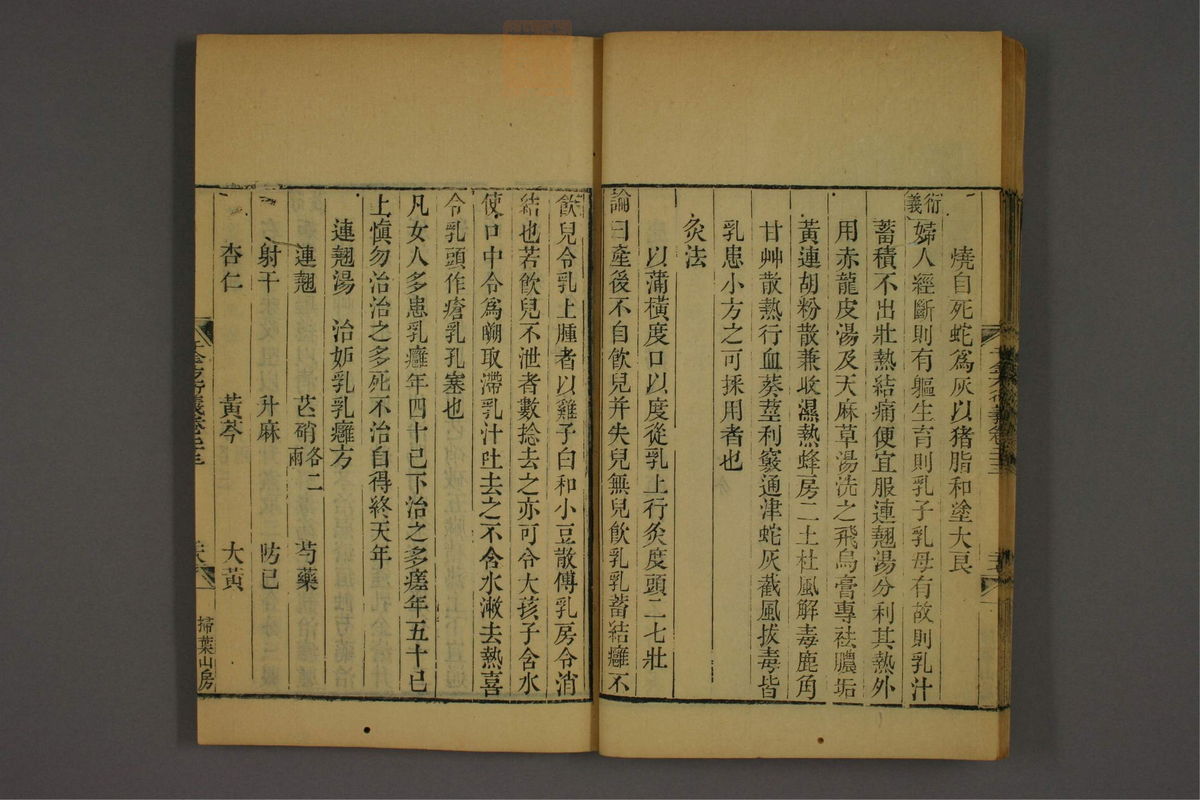 燒自死蛇爲灰以猪脂和塗大良
衍義婦人經斷則有軀生育則乳子乳母有故則乳汁
蓄積不出壯熱結痛便宜服連翹湯分利其熱外
用赤龍皮湯及天麻草湯洗之飛烏膏專祛膿垢
黃連胡粉散兼收濕熱蜂房二土杜風解毒鹿角
甘艸散熱行血葵莖利竅通津蛇灰截風拔毒皆
乳患小方之可採用者也
灸法
以蒲橫度口以度從乳上行灸度頭二七壯
論曰產後不自飲兒并失兒無兒飲乳乳蓄結癰不
飲兒令乳上腫者以雞子白和小豆散傅乳房令消
結也若飲兒不泄者數捻去之亦可令大孩子含水
使口中令爲嗍取滯乳汁吐去之不含水漱去熱喜
令乳頭作瘡乳孔塞也
凡女人多患乳癰年四十已下治之多瘥年五十已
上愼勿治治之多死不治自得終天年
連翹湯 治妬乳乳癰方
連翹 芒硝各二兩 芍藥
射干 升麻 防已
杏仁 黃芩 大黃
千金方衍義卷二十三
掃葉山房